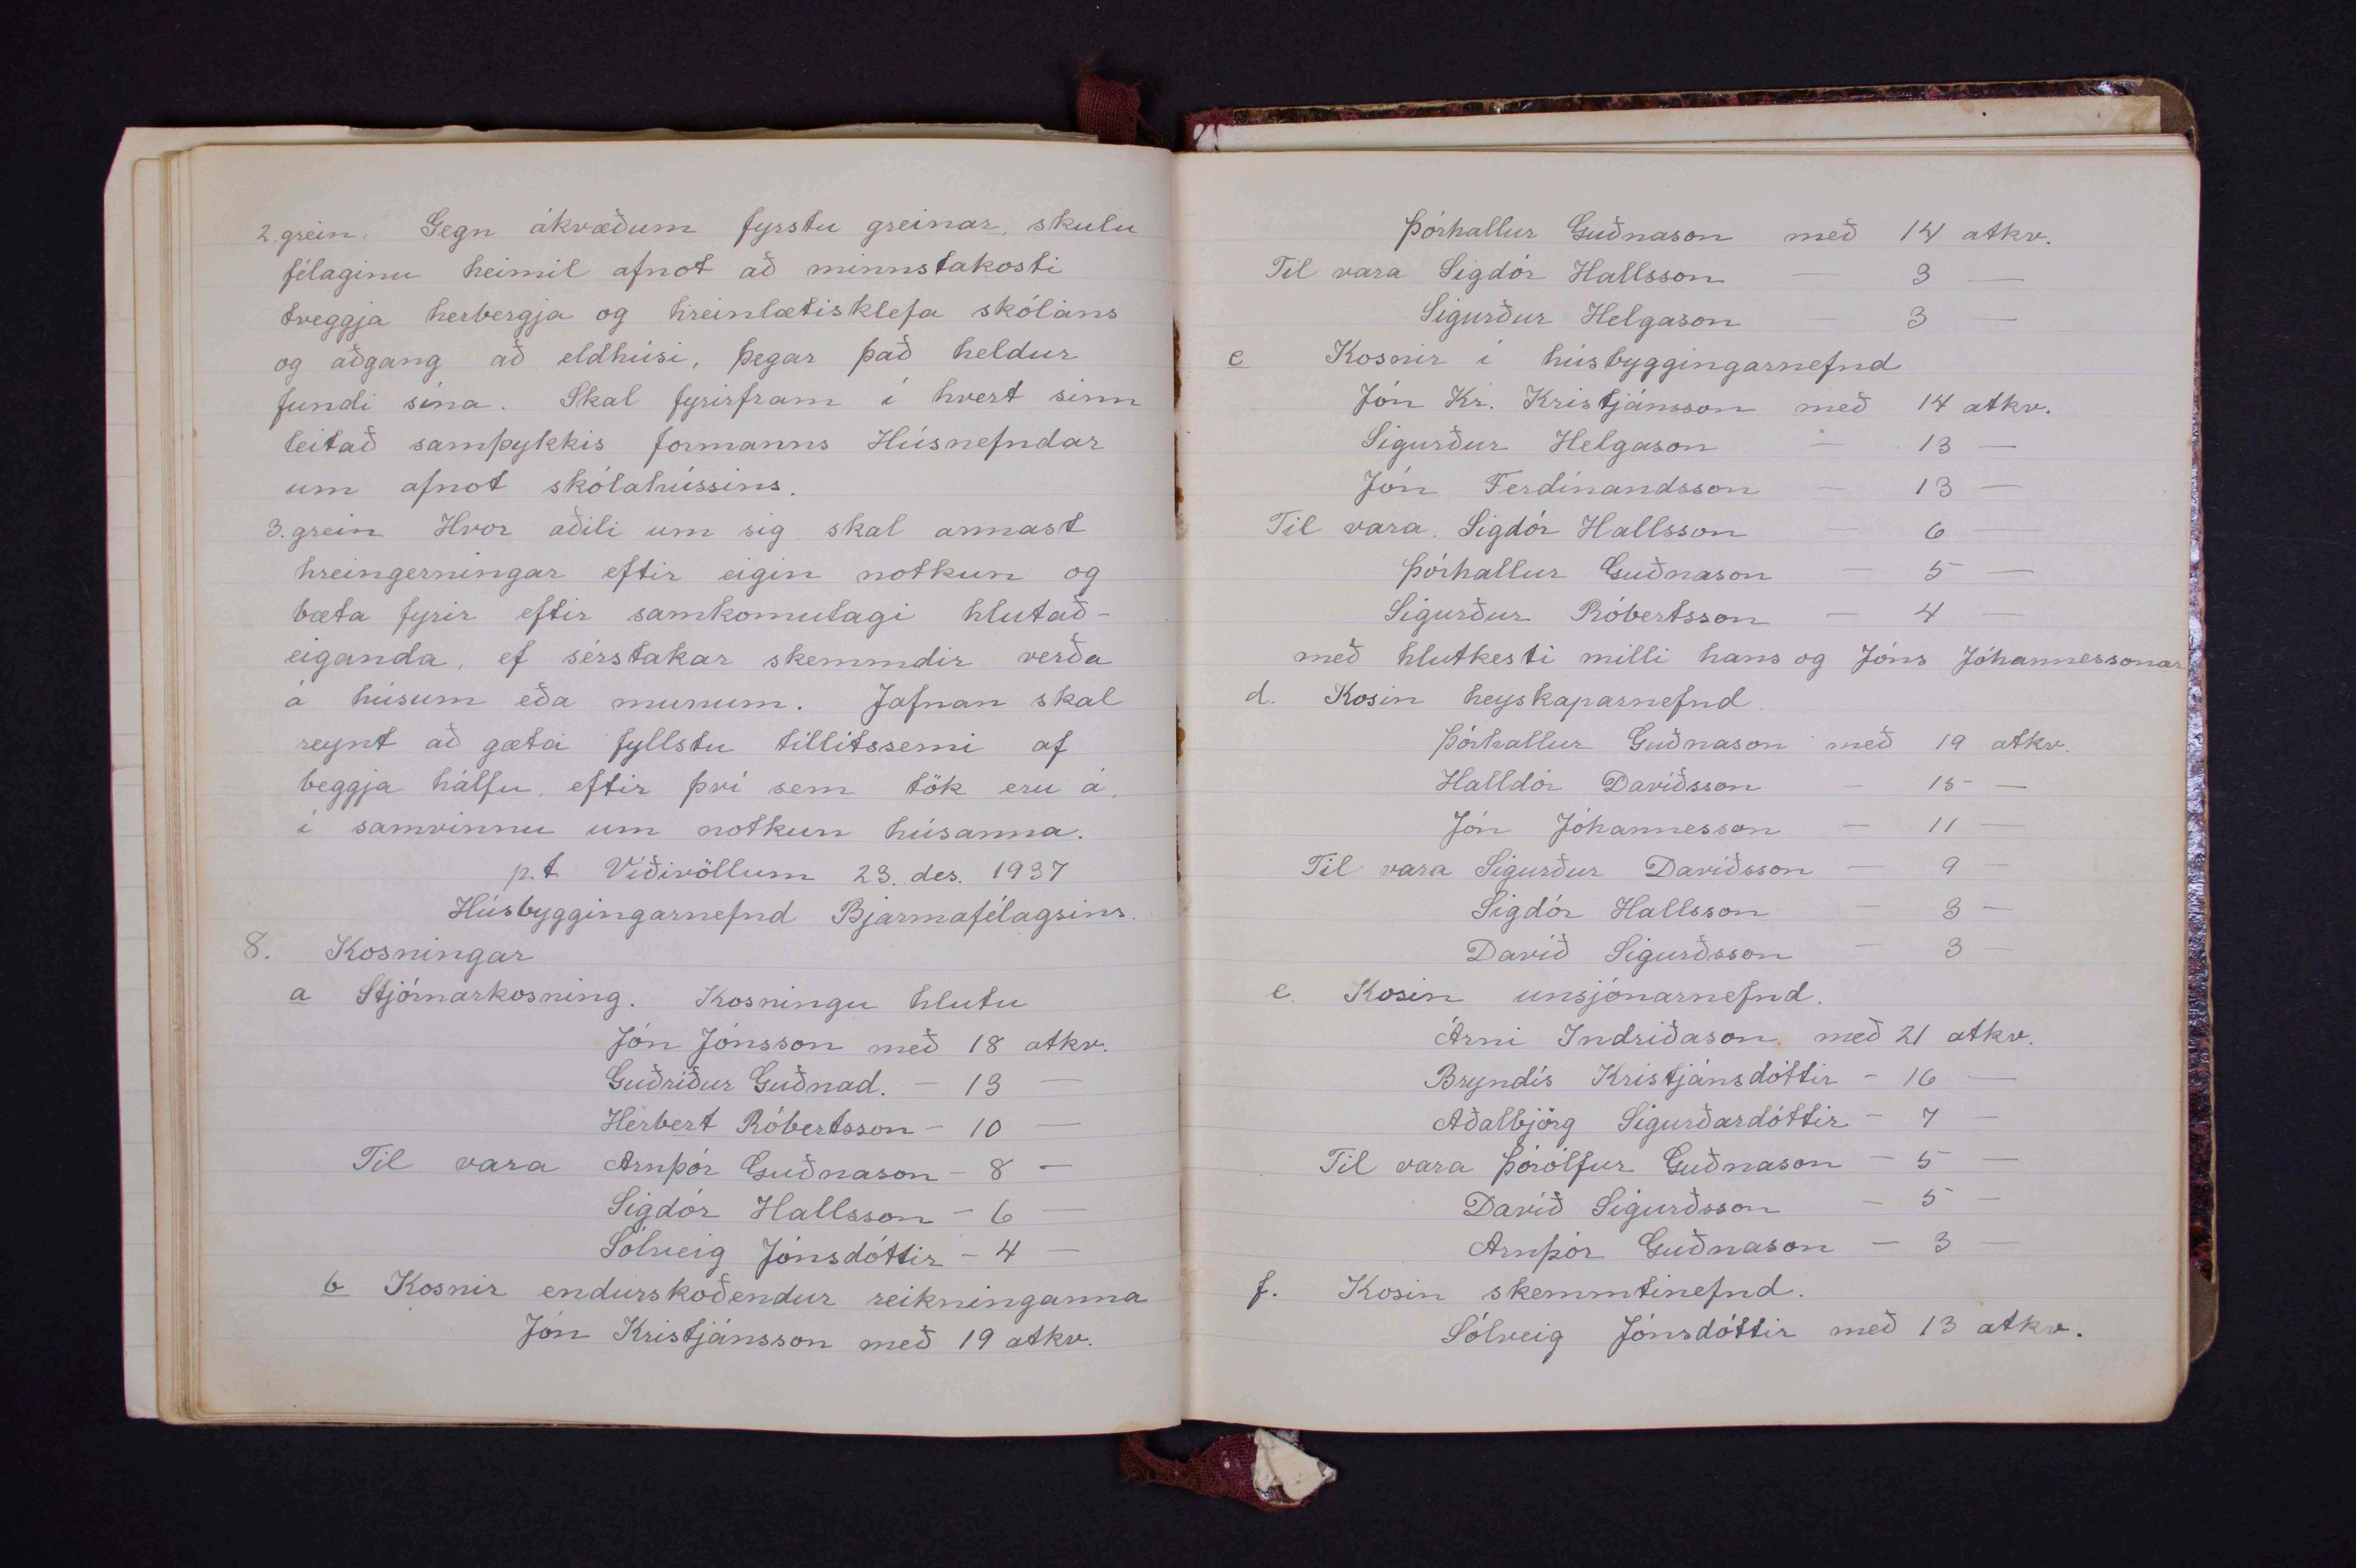 2. grein. Gegn ákvæðum fyrstu greinar, skulu
félaginu heimil afnot að minnstakosti
tveggja herbergja og hreinlætisklefa skólans
og aðgang að eldhúsi, þegar það heldur
fundi sína. Skal fyrirfram í hvert sinn
leitað samþykkis formanns Húsnefndar
um afnot skólahússins.
3. grein Hvor aðili um sig skal annast
hreingerningar eftir eigin notkun og
bæta fyrir eftir samkomulagi hlutað-
eiganda, ef sérstakar skemmdir verða
á húsum eða munum. Jafnan skal
reynt að gæta fyllstu tillitssemi af
beggja hálfu, eftir því sem tök eru á,
í samvinnu um notkun húsanna.
p.t. Víðivöllum 23. des. 1937
Húsbyggingarnefnd Bjarmafélagsins.
8. Kosningar
a Stjórnarkosning. Kosningu hlutu
Jón Jónsson með 18 atkv.
Guðríður Guðnad. — 13 —
Herbert Róbertsson — 10 —
Til vara Arnþór Guðnason — 8 —
Sigdór Hallsson — 6 —
Sólveig Jónsdóttir — 4 —
b Kosnir endurskoðendur reikninganna
Jón Kristjánsson með 19 atkv.
Þórhallur Guðnason með 14 atkv.
Til vara Sigdór Hallsson — 3 —
Sigurður Helgason — 3 —
c Kosnir í húsbyggingarnefnd
Jón Kr. Kristjánsson með 14 atkv.
Sigurður Helgason — 13 —
Jón Ferdínandsson — 13 —
Til vara. Sigdór Hallsson — 6 —
Þórhallur Guðnason — 5 —
Sigurður Róbertsson — 4 —
með hlutkesti milli hans og Jóns Jóhannessonar
d. Kosin heyskaparnefnd.
Þórhallur Guðnason með 19 atkv.
Halldór Davíðsson — 15 —
Jón Jóhannesson — 11 —
Til vara Sigurður Davíðsson — 9 —
Sigdór Hallsson — 3 —
Davíð Sigurðsson — 3 —
e. Kosin unsjónarnefnd.
Árni Indriðason með 21 atkv.
Bryndís Kristjánsdóttir — 16 —
Aðalbjörg Sigurðardóttir — 7 —
Til vara Þórólfur Guðnason — 5 —
Davíð Sigurðsson — 5 —
Arnþór Guðnason — 3 —
f. Kosin skemmtinefnd.
Sólveig Jónsdóttir með 13 atkv.